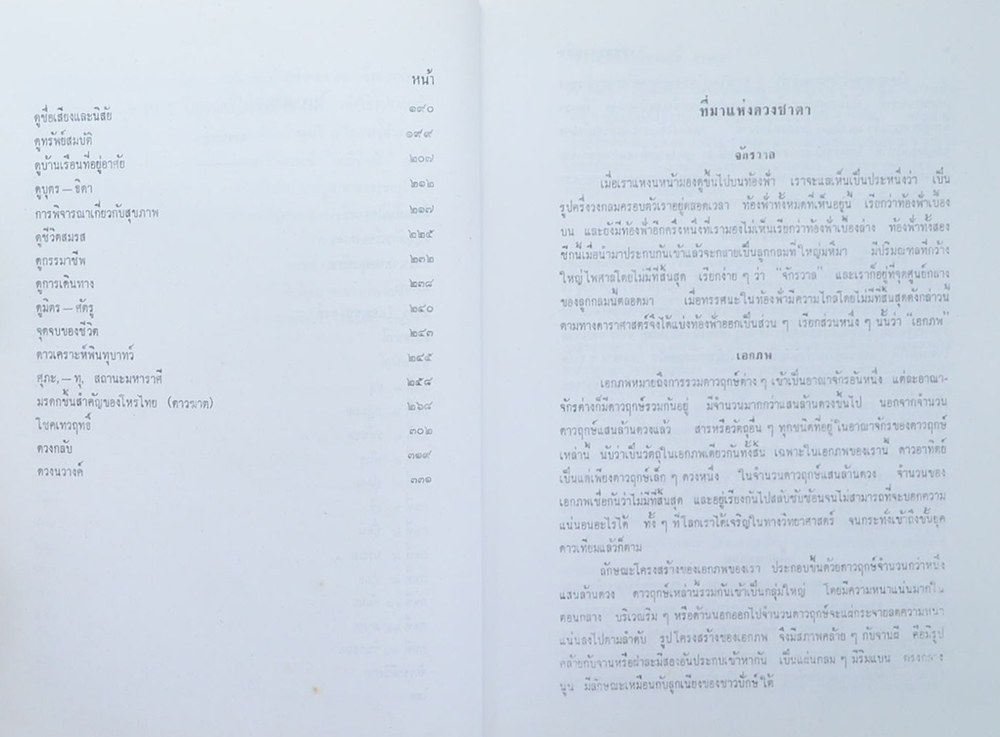 หน้า
ดูชื่อเสียงและนิสัย ๑๙๐
ดูทรัพย์สมบัติ ๑๙๙
ดูบ้านเรือนที่อยู่อาศัย ๒๐๗
ดูบุตร – ธิดา ๒๑๒
การพิจารณาเกี่ยวกับสุขภาพ ๒๑๗
ดูชีวิตสมรส ๒๒๕
ดูกรรมาชีพ ๒๓๒
ดูการเดินทาง ๒๓๘
ดูมิตร – ศัตรู ๒๔๐
จุดจบของชีวิต ๒๔๓
ดาวเคราะห์พินทุบาทว์ ๒๔๕
ศุภะ, – ทุ, สถานะมหาราศี ๒๕๘
มรดกชิ้นสำคัญของโหรไทย (ดาวฆาต) ๒๖๘
โชคเทวฤทธิ์ ๓๐๒
ดวงกลับ ๓๑๙
ดวงนวางค์ ๓๓๑
ที่มาแห่งดวงชาตา
จักรวาล
เมื่อเราแหงนหน้ามองดูขึ้นไปบนท้องฟ้า เราจะแลเห็นเป็นประหนึ่งว่า เป็น
รูปครึ่งวงกลมครอบตัวเราอยู่ตลอดเวลา ท้องฟ้าทั้งหมดที่เห็นอยู่นี้ เรียกว่าท้องฟ้าเบื้อง
บน และยังมีท้องฟ้าอีกครึ่งหนึ่งที่เรามองไม่เห็นเรียกว่าท้องฟ้าเบื้องล่าง ท้องฟ้าทั้งสอง
ซีกนี้เมื่อนำมาประกบกันเข้าแล้วจะกลายเป็นลูกกลมที่ใหญ่มหึมา มีปริมณฑลที่กว้าง
ใหญ่ไพศาลโดยไม่มีที่สิ้นสุด เรียกง่าย ๆ ว่า "จักรวาล" และเราก็อยู่ที่จุดศูนย์กลาง
ของลูกกลมนี้ตลอดมา เมื่อทรรศนะในท้องฟ้ามีความไกลโดยไม่มีที่สิ้นสุดดังกล่าวนี้
ตามทางดาราศาสตร์จึงได้แบ่งท้องฟ้าออกเป็นส่วน ๆ เรียกส่วนหนึ่ง ๆ นั้นว่า "เอกภพ"
เอกภพ
เอกภพหมายถึงการรวมดาวฤกษ์ต่าง ๆ เข้าเป็นอาณาจักรอันหนึ่ง แต่ละอาณา-
จักรต่างก็มีดาวฤกษ์รวมกันอยู่ มีจำนวนมากกว่าแสนล้านดวงขึ้นไป นอกจากจำนวน
ดาวฤกษ์แสนล้านดวงแล้ว สารหรือวัตถุอื่น ๆ ทุกชนิดที่อยู่ในอาณาจักรของดาวฤกษ์
เหล่านี้ นับว่าเป็นวัตถุในเอกภพเดียวกันทั้งสิ้น เฉพาะในเอกภพของเรานี้ ดาวอาทิตย์
เป็นแต่เพียงดาวฤกษ์เล็ก ๆ ดวงหนึ่ง ในจำนวนดาวฤกษ์แสนล้านดวง จำนวนของ
เอกภพเชื่อกันว่าไม่มีที่สิ้นสุด และอยู่เรียงกันไปสลับซับซ้อนจนไม่สามารถที่จะบอกความ
แน่นอนอะไรได้ ทั้ง ๆ ที่โลกเราได้เจริญในทางวิทยาศาสตร์ จนกระทั่งเข้าถึงขั้นยุค
ดาวเทียมแล้วก็ตาม
ลักษณะโครงสร้างของเอกภพของเรา ประกอบขึ้นด้วยดาวฤกษ์จำนวนกว่าหนึ่ง
แสนล้านดวง ดาวฤกษ์เหล่านี้รวมกันเข้าเป็นกลุ่มใหญ่ โดยมีความหนาแน่นมากใน
ตอนกลาง บริเวณริม ๆ หรือด้านนอกออกไปจำนวนดาวฤกษ์จะแลกระจายลดความหนา
แน่นลงไปตามลำดับ รูปโครงสร้างของเอกภพ จึงมีสภาพคล้าย ๆ กับจานผี คือมีรูป
คล้ายกับจานหรือฝาละมีสองอันประกบเข้าหากัน เป็นแผ่นกลม ๆ มีริมแบน ตรงกลาง
นูน มีลักษณะเหมือนกับลูกเนียงของชาวปักษ์ใต้